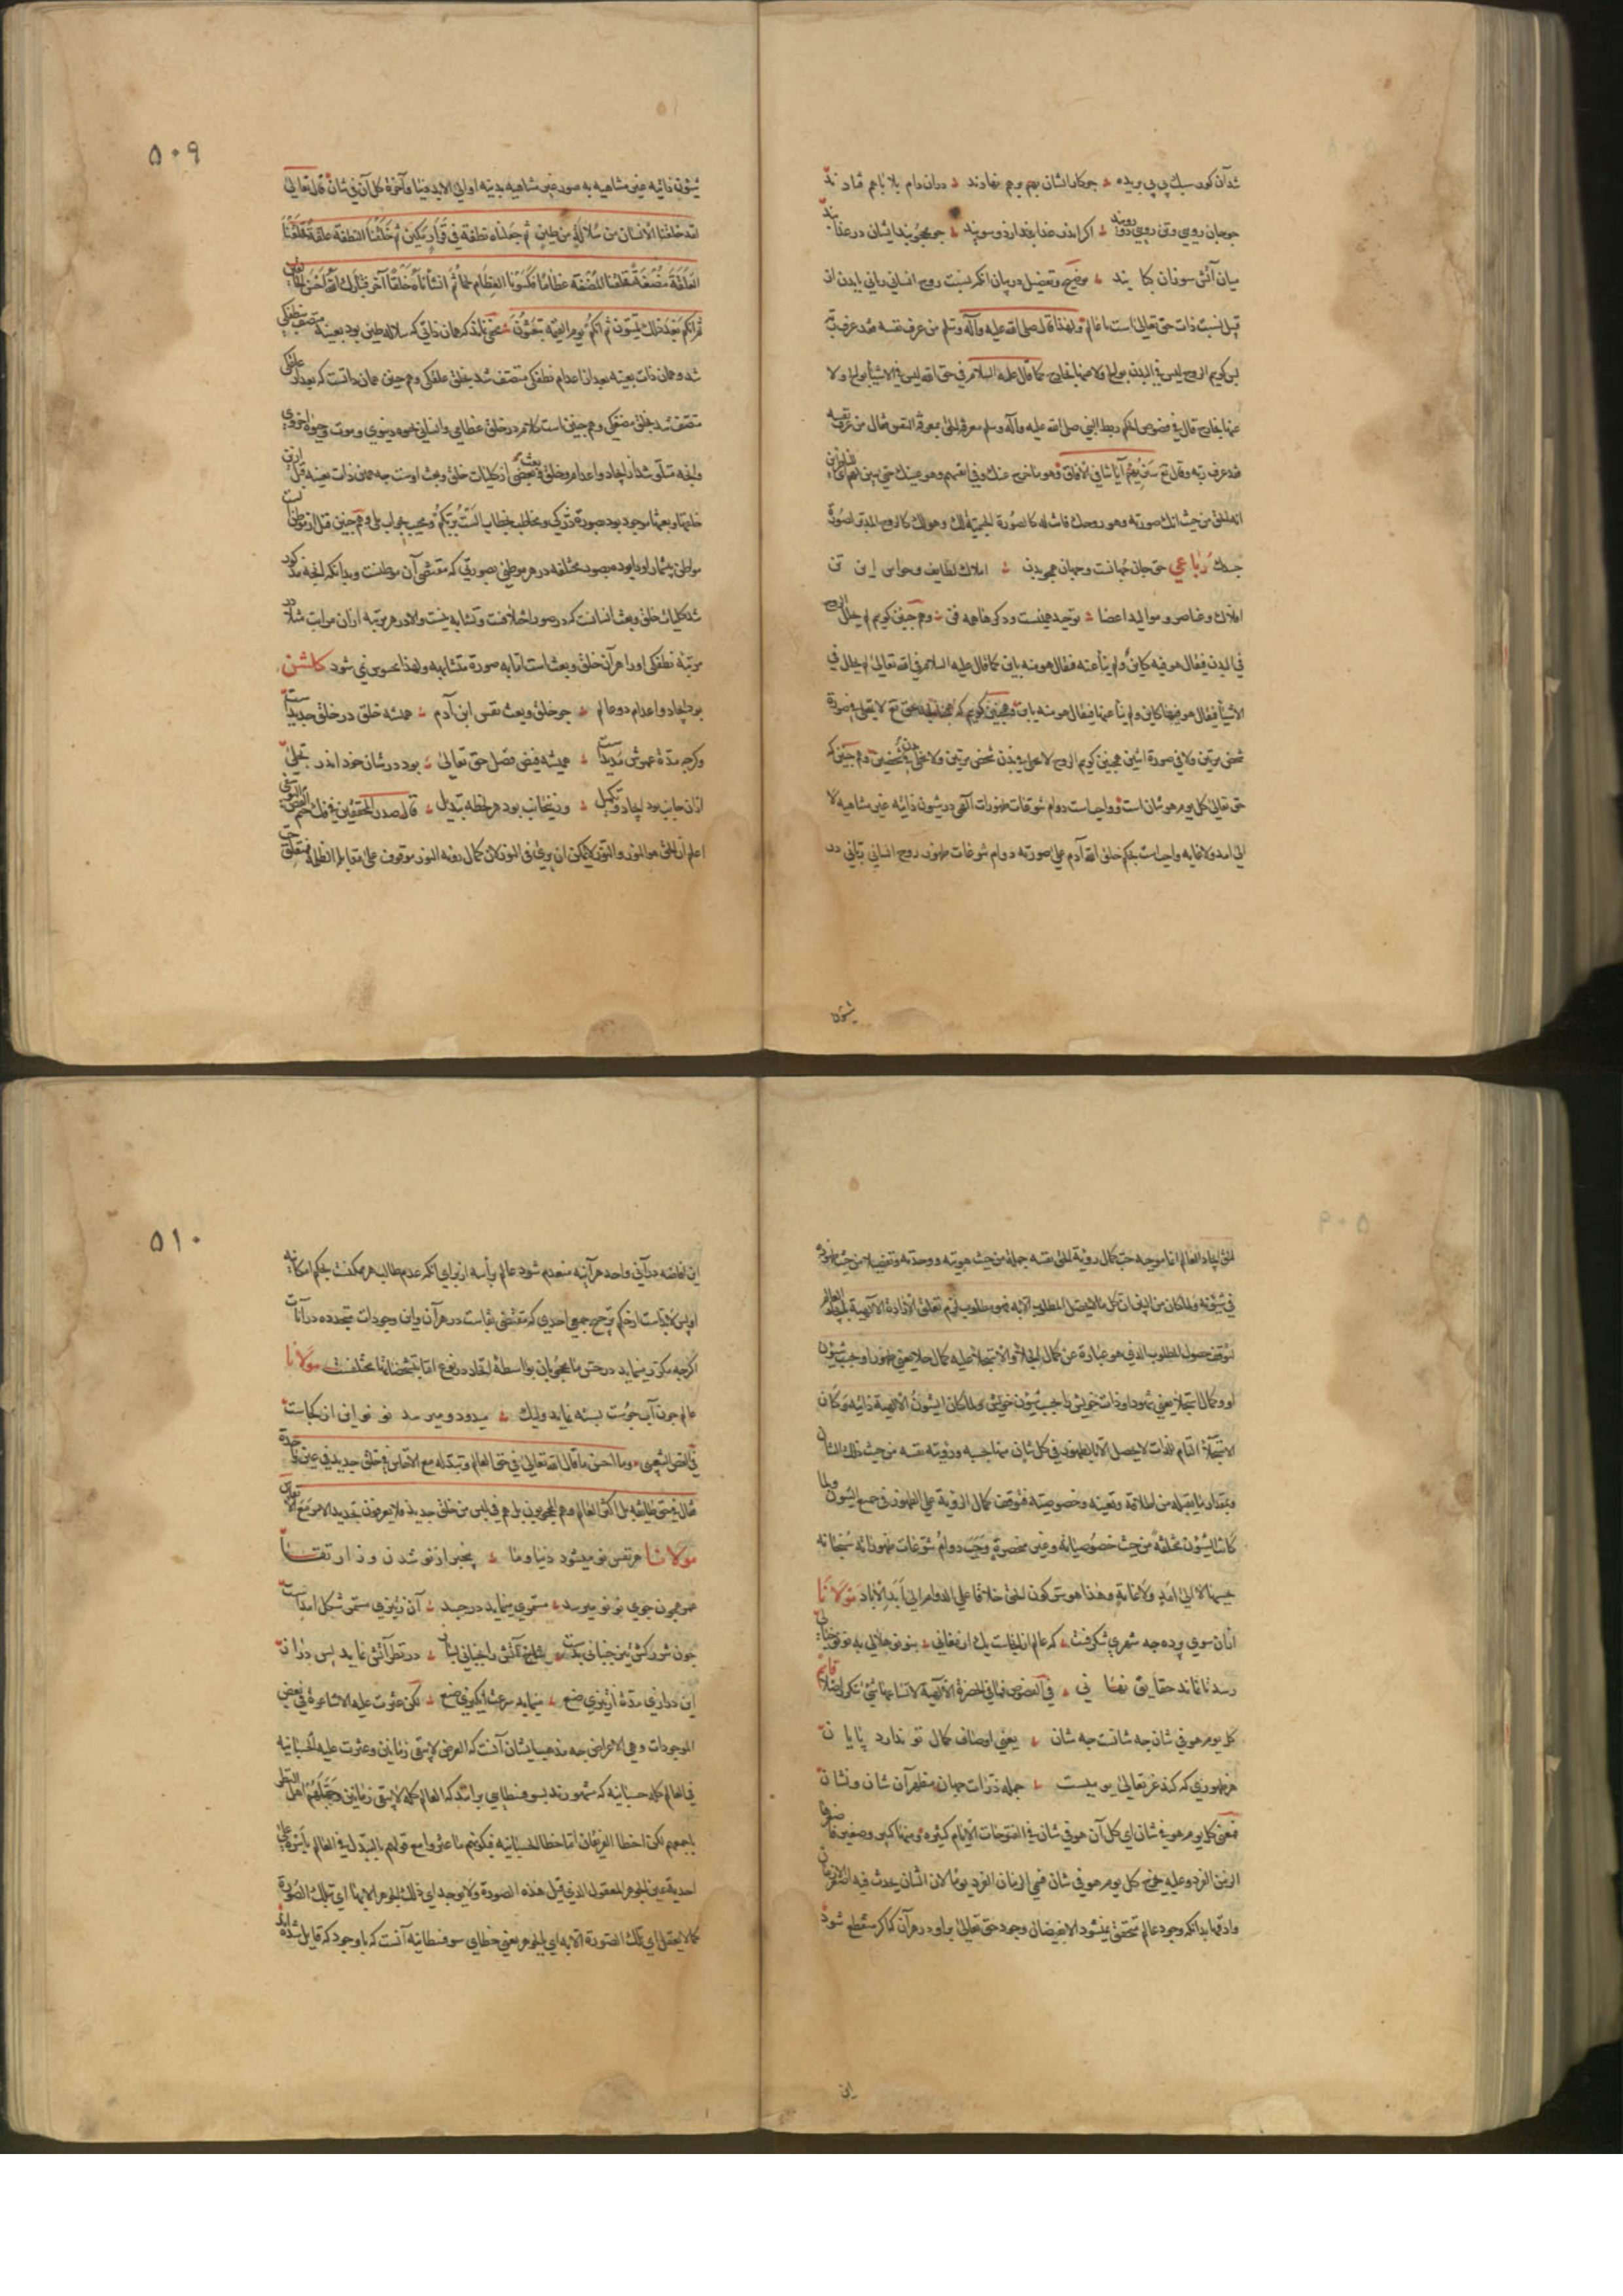 شدآن کور سبک پی پی بریده ؞ جو کار ایشان بهم برهم نهادند ؞ دران دام بلا باهم فتادند
جو جان روی و تن روی دوروند ؞ اکر اندر عذابند ار ذو سویند ؞ جو می جویند ایشان در عذابند
میان آتش سوزان کبابند ؞ توضیح و تفصیل در بیان انکه نسبت روح انسانی ربانی بابدن از
قبیل نسبت ذات حق تعالی است با عالم ولهذا قال صلی الله علیه وآله وسلم من عرف نفسه فقد عرف ربه
بس کویم الروح لیس فی البدن بوالج ولا عنها بخارج کما قال علیه السلام فی حق الله لیس فی الاشیآ بوالج ولا
عنها بخارج قال فی فصوص الحکم ربط النبی صلی الله علیه وآله وسلم معرفة الحق بمعرفة النفس فقال من عرف نفسه
فقد عرف ربه وقال تع سنریهم آیاتنا فی الآفاق وهو ما خرج عنک وفی انفسهم وهو عینک حتی یتبین لهم ای للناظرین
انه الحق من حیث انک صورته وهو روحک فانت له کالصورة الجسمیة لک وهو لک کالروح المدبر لصورة
جسدک رباعی حق جان جهانست و جهان همچو بدن ؞ املاک لطایف و حواس این تن
افلاک و عناصر و موالید اعضا ؞ توحید همینست و دکر هاهمه فن ؞ و هم جنین کویم لم یحلل الروح
فی البدن فیقال هو فیه کاین ولم ینأ عنه فیقال هو منه باین کما قال علیه السلام فی الله تعالی لم یحلل فی
الاشیآ فیقال هو فیها کاین ولم ینأ عنها فیقال هو منه باین و همجنین کویم که همجنانکه حق تع لا یتجلی فی صورة
شخص مرتین ولا فی صورة اثنین همجنین کویم الروح لا یتجلی فی بدن شخص مرتین ولا یتجلی فی بدن شخصین و هم جنین که
حق تعالی کل یوم هو فی شان است و واجب است دوام تنوعات ظهورات الهی در شؤن ذاتیه غیر متناهیه لا
الی امد ولا غایه واجب است بحکم خلق الله آدم علی صورته دوام تنوعات ظهور روح انسانی ربانی در
شؤن
۵۰۹
شؤن ذاتیه غیر متناهیه به صور غیر متناهیه بدنیه او الی الابد دنیا وآخرة کل آن فی شان قال تعالی
لقد خلقنا الانسان من سلالة من طین ثم جعلناه نطفة فی قرار مکین ثم خلقنا النطفة علقة فخلقنا
العلقة مضغة فخلقنا المضغة عظاما فکسونا العظام لحما ثم انشأناه خلقا آخر فتبارک الله احسن الخالقین
ثم انکم بعد ذلک لمیتون ثم انکم یوم القیمة تبعثون ؞ مخفی نماند که همان ذاتی که سلاله طین بود بعینه متصف بنطفکی
شد و همان ذات بعینه بعد از اعدام نطفکی متصف شد بخلق علقکی و هم جنین همان ذاتست که بعد از علقکی
متصف شد بخلق مضغکی و هم جنین است کلام در خلق عظامی و انسانی خوه دنیوی و موت و حیوة اخروی
وانجه متلو شد از ایجاد و اعدام و خلق و بعث بعضی از کلیات خلق و بعث اوست جه همین ذات بعینه قبل ازین
خلقها و بعثها موجود بود بصورة ذرکی و مخاطب بخطاب الست بربکم و مجیب بجواب بلی و هم جنین قبل از موطن الست
مواطن بیشمار او را بوده بصور مختلفه در هر موطنی بصورتی که مقتضی آن موطنست و بدانکه انجه مذکور
شد کلیات خلق و بعث انسانست که در صور اختلافست و تشابه نیست والا در هر مرتبه ازان مراتب مثلا در
مرتبه نطفکی او را هر آن خلق و بعث است اما به صورة متشابهه و لهذا محسوس نمی شود کلشن
بود ایجاد و اعدام دو عالم ؞ جو خلق و بعث نفس ابن آدم ؞ همیشه خلق در خلق جدید است
وکرجه مدة عمرش مدید است ؞ همیشه فیض فضل حق تعالی ؞ بود در شان خود اندر تجلی
ازان جانب بود ایجاد و تکمیل ؞ وزین جانب بود هر لحظه تبدیل ؞ قال صدر المحققین فی فک ختم الفص الیوسفی
اعلم ان الحق هو النور والنور لا یمکن ان یری فی النور لان کمال رؤیة النور موقوف علی مقابلة الظلمة فمتعلق حب
الحق ایجاد العالم انما موجبه حب کمال رؤیة الحق نفسه جملة من حیث هویته و وحدته وتفصیلا من حیث ظهوره
فی شؤنه ولما کان من البین ان کل ما لا یحصل المطلوب الا به فهو مطلوب لزم تعلق الارادة الالهیة بایجاد العالم
لتوقف حصول المطلوب الذی هو عبارة عن کمال الجلاء والاستجلاء علیه کمال جلا یعنی ظهور او بحسب شؤن
او وکمال استجلا یعنی شهود او ذات خویش را بحسب شؤن خویش ولما کان الشؤن الالهیة ذاتیه وکان
الاستجلاء التام للذات لا یحصل الا بالظهور فی کل شان منها بحسبه ورؤیته نفسه من حیث ذلک الشان
وبمقدار ما یقبله من اطلاقه وتعینه وخصوصیته فتوقف کمال الرؤیة علی الظهور فی جمیع الشؤن ولما
کانت الشؤن مختلفة من حیث خصوصیاتها وغیر منحصرة وجب دوام تنوعات ظهوراته سبحانه
بحسبها لا الی امد ولا غایة وهذا هو سر کون الحق خلاقا علی الدوام الی ابد الآباد مولانا
ازان سوی پرده جه شهری شکرفست ؞ که عالم ازانجاست یک ارمغانی ؞ بنو نو هلالی به نو نو خیالی
رسد تا نماند حقایق نهانی ؞ فی الفصوص فما فی الحضرة الالهیة لاتساعها شیء تکرر اصلا قایم
کل یوم هو فی شان جه شانست جه شان ؞ یعنی اوصاف کمال تو ندارد پایان
هر ظهوری که کند غر تعالی یومیست ؞ جمله ذرات جهان مظهر آن شان و نشان
فمعنی کل یوم هو فی شان ای کل آن هو فی شان فی الفتوحات الایام کثیره ومنها کبیر وصغیر فاصغرها
الزمن الفرد وعلیه یخرج کل یوم هو فی شان فسمی الزمان الفرد یوما لان الشان یحدث فیه
وادقها بدانکه وجود عالم متحقق نمیشود الا بفیضان وجود حق تعالی براو در هر آن که اکر منقطع شود
این
۵۱۰
این افاضه درآنی واحد هرآینه منعدم شود عالم بأسره از برای انکه عدم طالب هر ممکنست بحکم امکانیه
او پس لابد است از حکم ترجیح جمعی احدی که مقتضی بقاست در هر آن واین وجودات متجدده در آنات
اکرجه مکرر مینماید در حس ما محجوبان بواسطه اتحاد در نوع اما بتشخصاتها مختلفست مولانا
عالم جون آب جوست بسته نماید ولیک ؞ میرود و میرسد نو نو این از کجاست
فی الفص الشعیبی ؞ وما احسن ما قال الله تعالی فی حق العالم وتبدله مع الانفاس فی خلق جدید فی عین واحدة
فقال فی حق طائفه بل اکثر العالم وهم المحجوبون بل هم فی لبس من خلق جدید فلا یعرفون تجدید الامر مع الانفاس
مولانا هر نفس نو میشود دنیا و ما ؞ بیخبر از نو شدن وندر بقا
عمر همجون جوی نو نو میرسد ؞ مستمری مینماید در جسد ؞ آن ز تیزی مستمر شکل آمدست
جون شرر کش تیز جنبانی بدست ؞ شاخ آتش را بجنبانی بساز ؞ در نظر آتش نماید بس دراز
این درازی مدة از تیزی صنع ؞ مینماید سرعت انکیزی صنع ؞ لکن عثرت علیه الاشاعرة فی بعض
الموجودات وهی الاعراض جه مذهب ایشان آنست که العرض لا یبقی زمانین وعثرت علیه الحسبانیه
فی العالم کله حسبانیه که مشهورند بسوفسطایی برانند که العالم کله لا یبقی زمانین وجهلهم اهل النظر
باجمعهم لکن اخطا الفریقان اما خطا الحسبانیه فبکونهم ما عثروا مع قولهم بالتبدل فی العالم باسره علی
احدیة عین الجوهر المعقول الذی قبل هذه الصورة ولا یوجد ای ذلک الجوهر الا بها ای بتلک الصورة
کما لا یعقل ای تلک الصورة الا به ای بالجوهر یعنی خطای سوفسطائیه آنست که باوجود که قایل شده اند